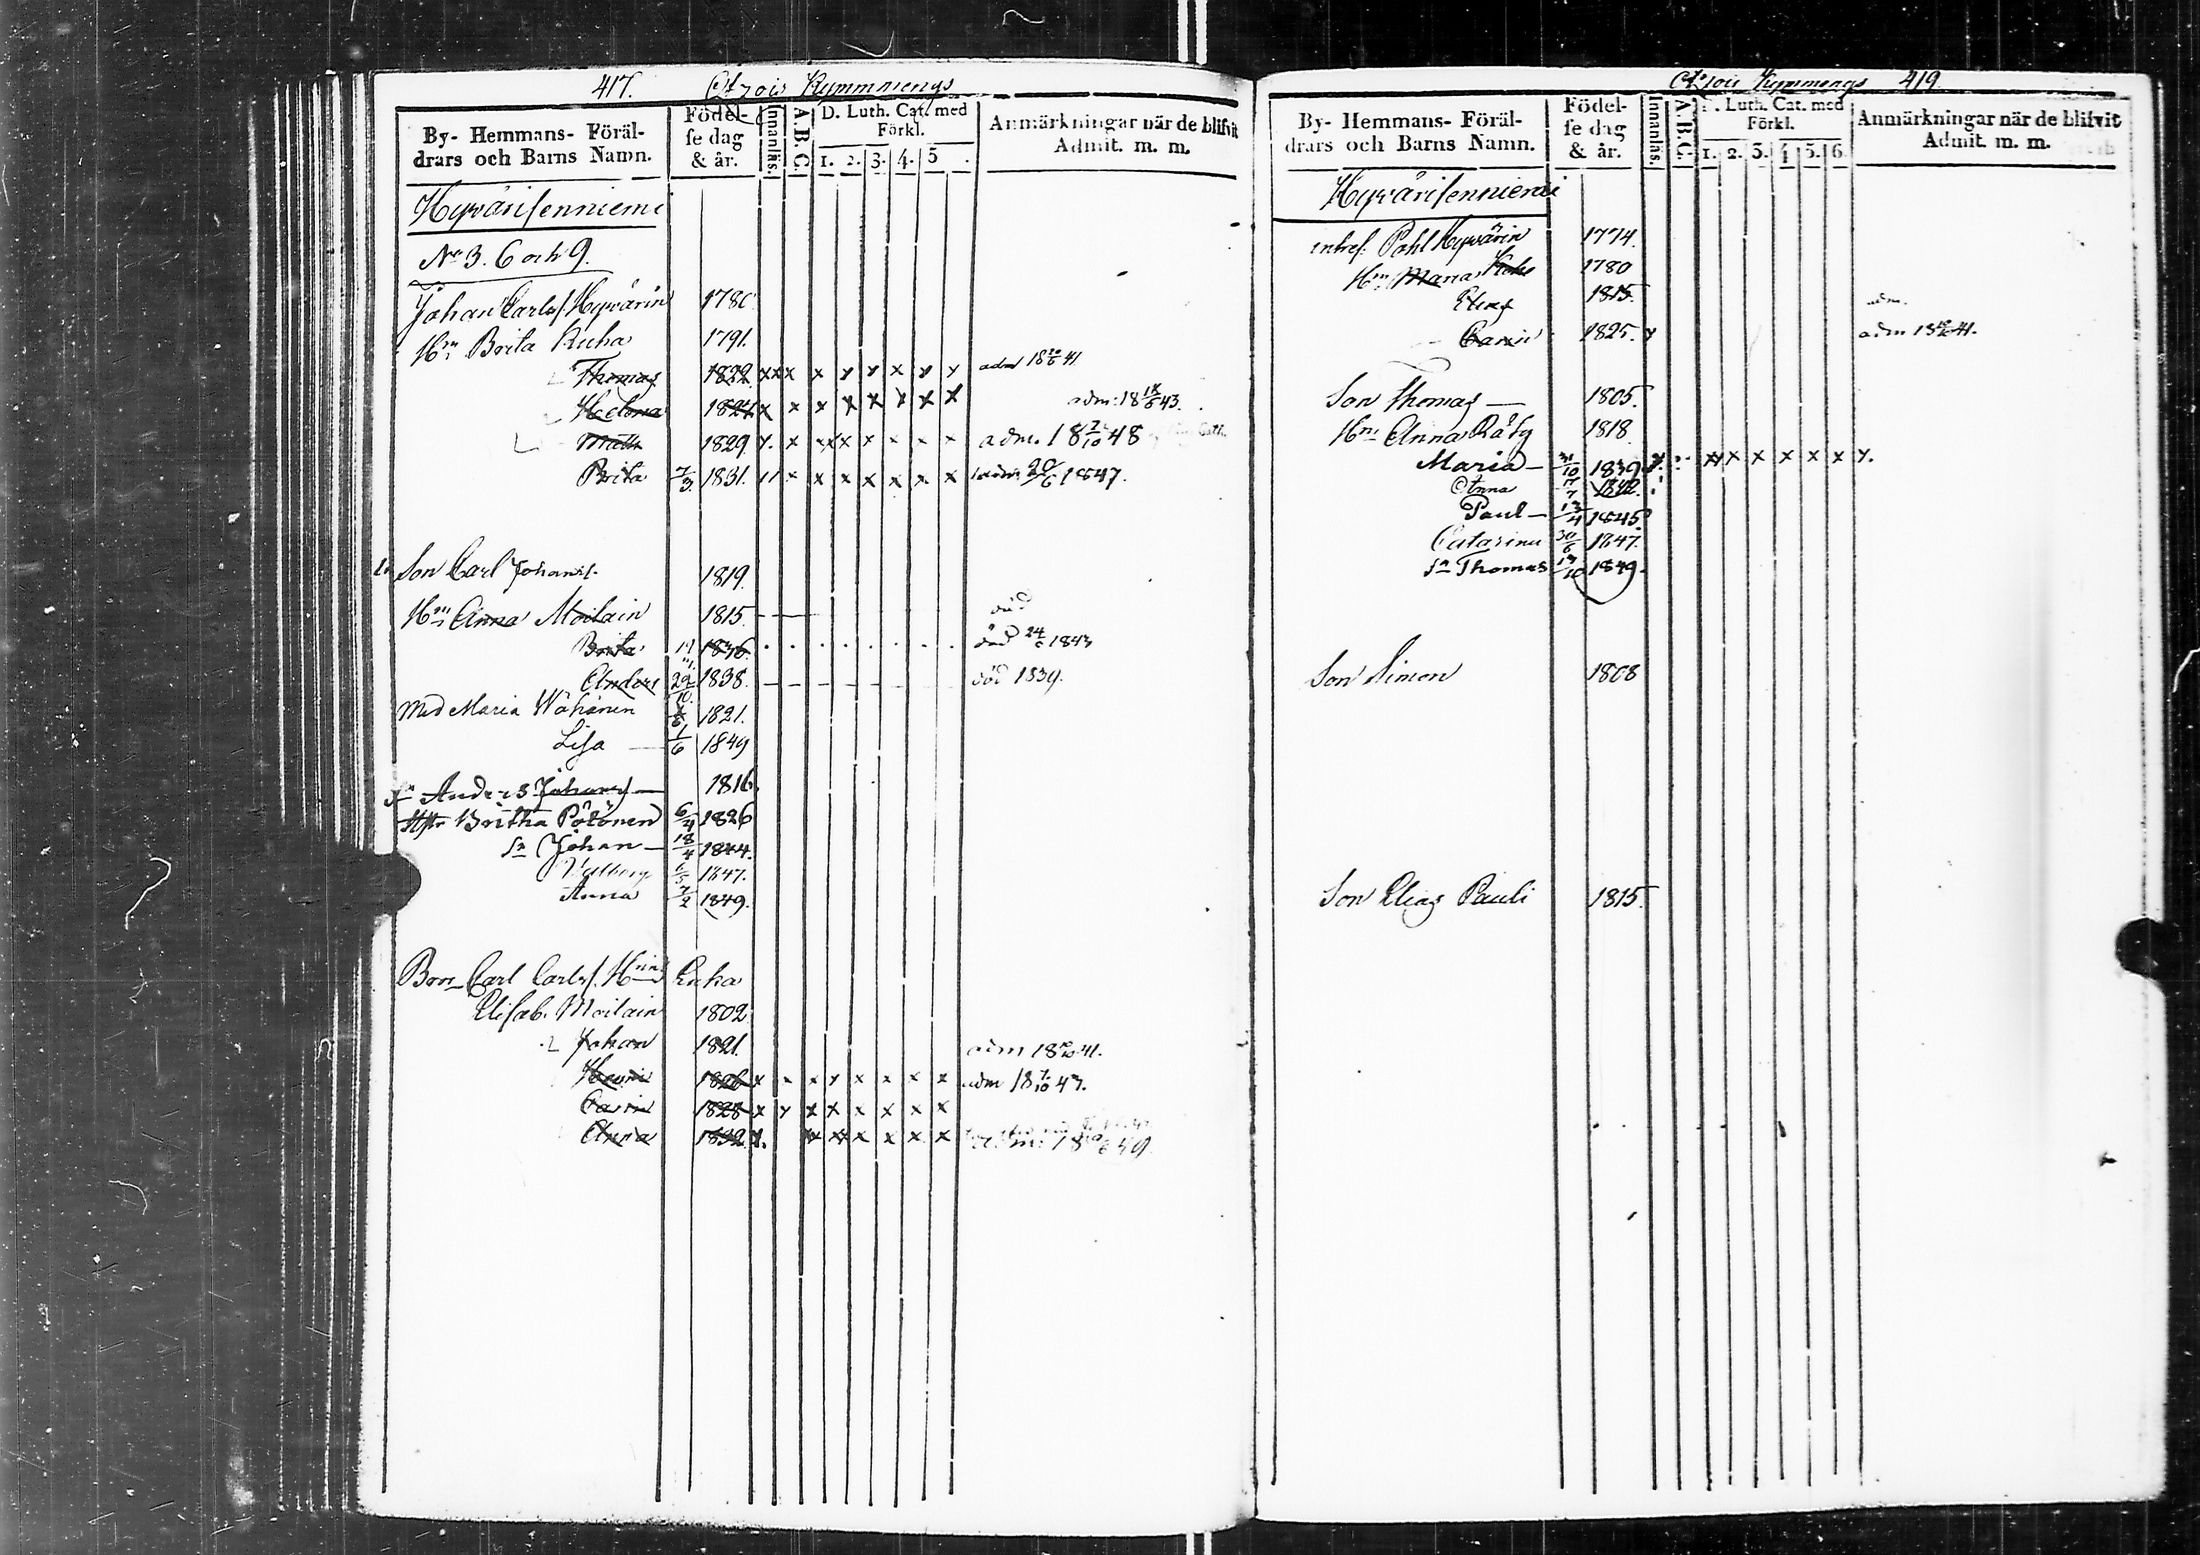 417.
By- Hemmans- Föräl-
drars och Barns Namn.
Födel-
se dag
& år.
Innanläs.
A.B.C.
D. Luth. Cat. med
Förkl.
1. 2. 3. 4. 5
Anmärkningar när de blifvit
Admit. m. m.
Hyvärisenniemi
No 3. 6 och 9.
Johan Carlss. Hyvärin 1780
Hu Brita Kuha 1791.
Thomas 1822 x x x x x x x x x adm 18 41
Helena 1824 x x x x x x x x adm: 18 43.
Matts 1829 x x x x x x x x adm. 18 7/10 48
Brita 7/3 1831. x x x x x x x adm: 20/6 1847.
Son Carl Johans. 1819.
Anna Moilain 1815. död
Brita 1836. död 1843
Anders 29/10 1838. död 1839.
Med Maria Wähänen 1821.
Lisa 1/6 1849
Anders Johans 1816.
Hstr Britha Pötönen 6/4 1826
Sn Johan 18/4 1844.
1847.
Anna 7/2 1849.
Bror Carl Carlss. Kuha
Elisab. Moilain 1802
Johan 1821. adm 18 41.
1826 x x x x x x x x adm 18 7/10 47.
Carin 1828 x x x x x x x x
Anna 1832 x x x x x x x adm: 18 49.
419
By- Hemmans- Föräl-
drars och Barns Namn.
Födel-
se dag
& år.
Innanläs.
A.B.C.
D. Luth. Cat. med
Förkl.
1. 2. 3. 4 5. 6
Anmärkningar när de blifvit
Admit. m. m.
Hyvärisenniemi
Pahl Hyvärin 1774.
Maria 1780
Elias 1815. adm.
Carin 1825. x adm 18 41.
Son Thomas 1805.
Anna Räty 1818
Maria 31/10 1839 x x x x x x x
Anna 17/7 1842.
Paul 13/4 1845
Catarina 30/6 1847.
Sn Thomas 1849.
Son Simon 1808
Son Elias Pauli 1815.